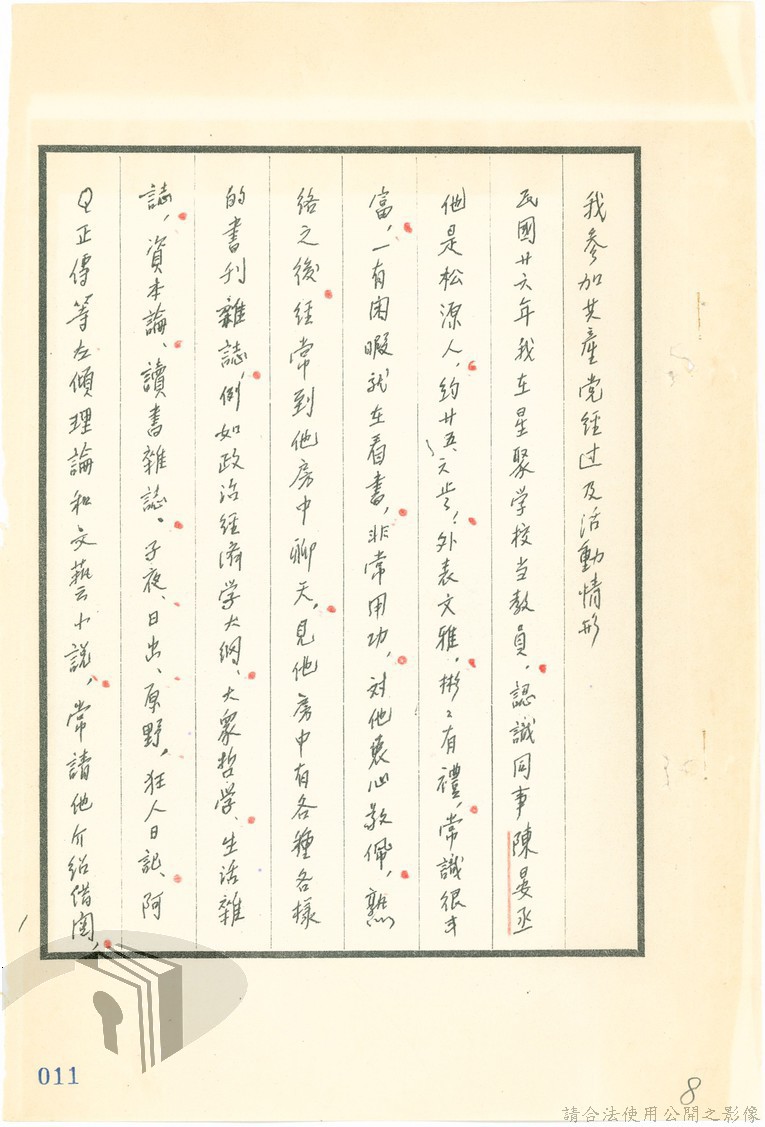 我参加共產党经过及活動情形
民國廿六年我在星聚学校当教員，認識同事陳晏丞
他是松源人，約廿五六岁，外表文雅，彬〻有禮，常識很丰
富，一有闲暇就在看書，非常用功，对他衷心敬佩，熟
络之後經常到他房中聊天，見他房中有各種各樣
的書刊雜誌，例如政治經濟学大綱、大眾哲学、生活雜
誌，資本論、讀書雜誌、子夜、日出、原野，狂人日記、阿
Q正傳等左傾理論和文藝小說，常請他介紹借閱，
011
8
請合法使用公開之影像